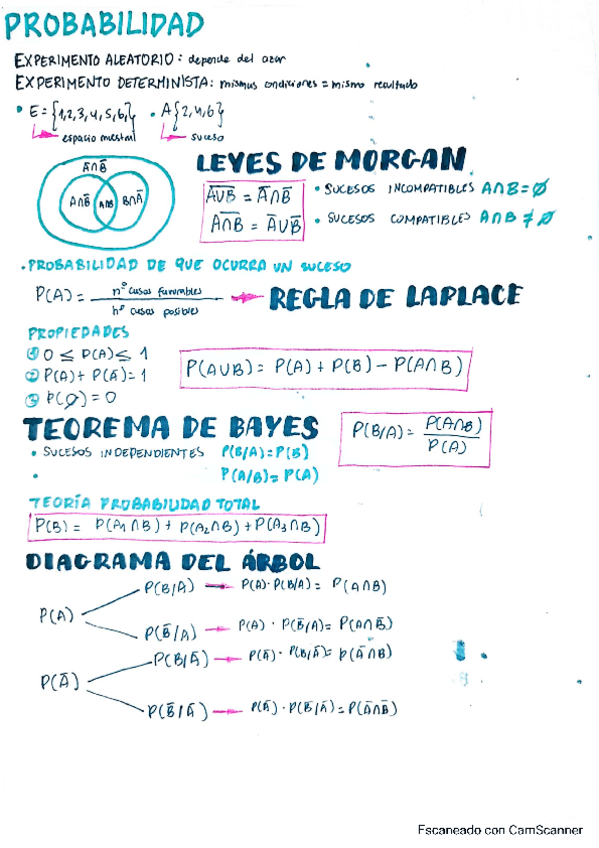 PROBABILIDAD
EXPERIMENTO ALEATORIO: depende del azar
EXPERIMENTO DETERMINISTA: mismas condiciones = mismo resultado
• E = {1,2,3,4,5,6,} • A {2,4,6}
espacio muestral suceso
LEYES DE MORGAN
A̅∩B̅
A∩B̅ A∩B B∩A̅
\overline{A∪B} = A̅∩B̅ • SUCESOS INCOMPATIBLES A∩B=∅
\overline{A∩B} = A̅∪B̅ • SUCESOS COMPATIBLES A∩B ≠ ∅
• PROBABILIDAD DE QUE OCURRA UN SUCESO
P(A) = nº casos favorables / nº casos posibles → REGLA DE LAPLACE
PROPIEDADES
① 0 ≤ P(A) ≤ 1
② P(A) + P(A̅) = 1
③ P(∅) = 0
P(A∪B) = P(A) + P(B) - P(A∩B)
TEOREMA DE BAYES
P(B/A) = P(A∩B) / P(A)
• SUCESOS INDEPENDIENTES P(B/A) = P(B)
• P(A/B) = P(A)
TEORÍA PROBABILIDAD TOTAL
P(B) = P(A₁∩B) + P(A₂∩B) + P(A₃∩B)
DIAGRAMA DEL ÁRBOL
P(A)
P(B/A) → P(A) · P(B/A) = P(A∩B)
P(B̅/A) → P(A) · P(B̅/A) = P(A∩B̅)
P(A̅)
P(B/A̅) → P(A̅) · P(B/A̅) = P(A̅∩B)
P(B̅/A̅) → P(A̅) · P(B̅/A̅) = P(A̅∩B̅)
Escaneado con CamScanner